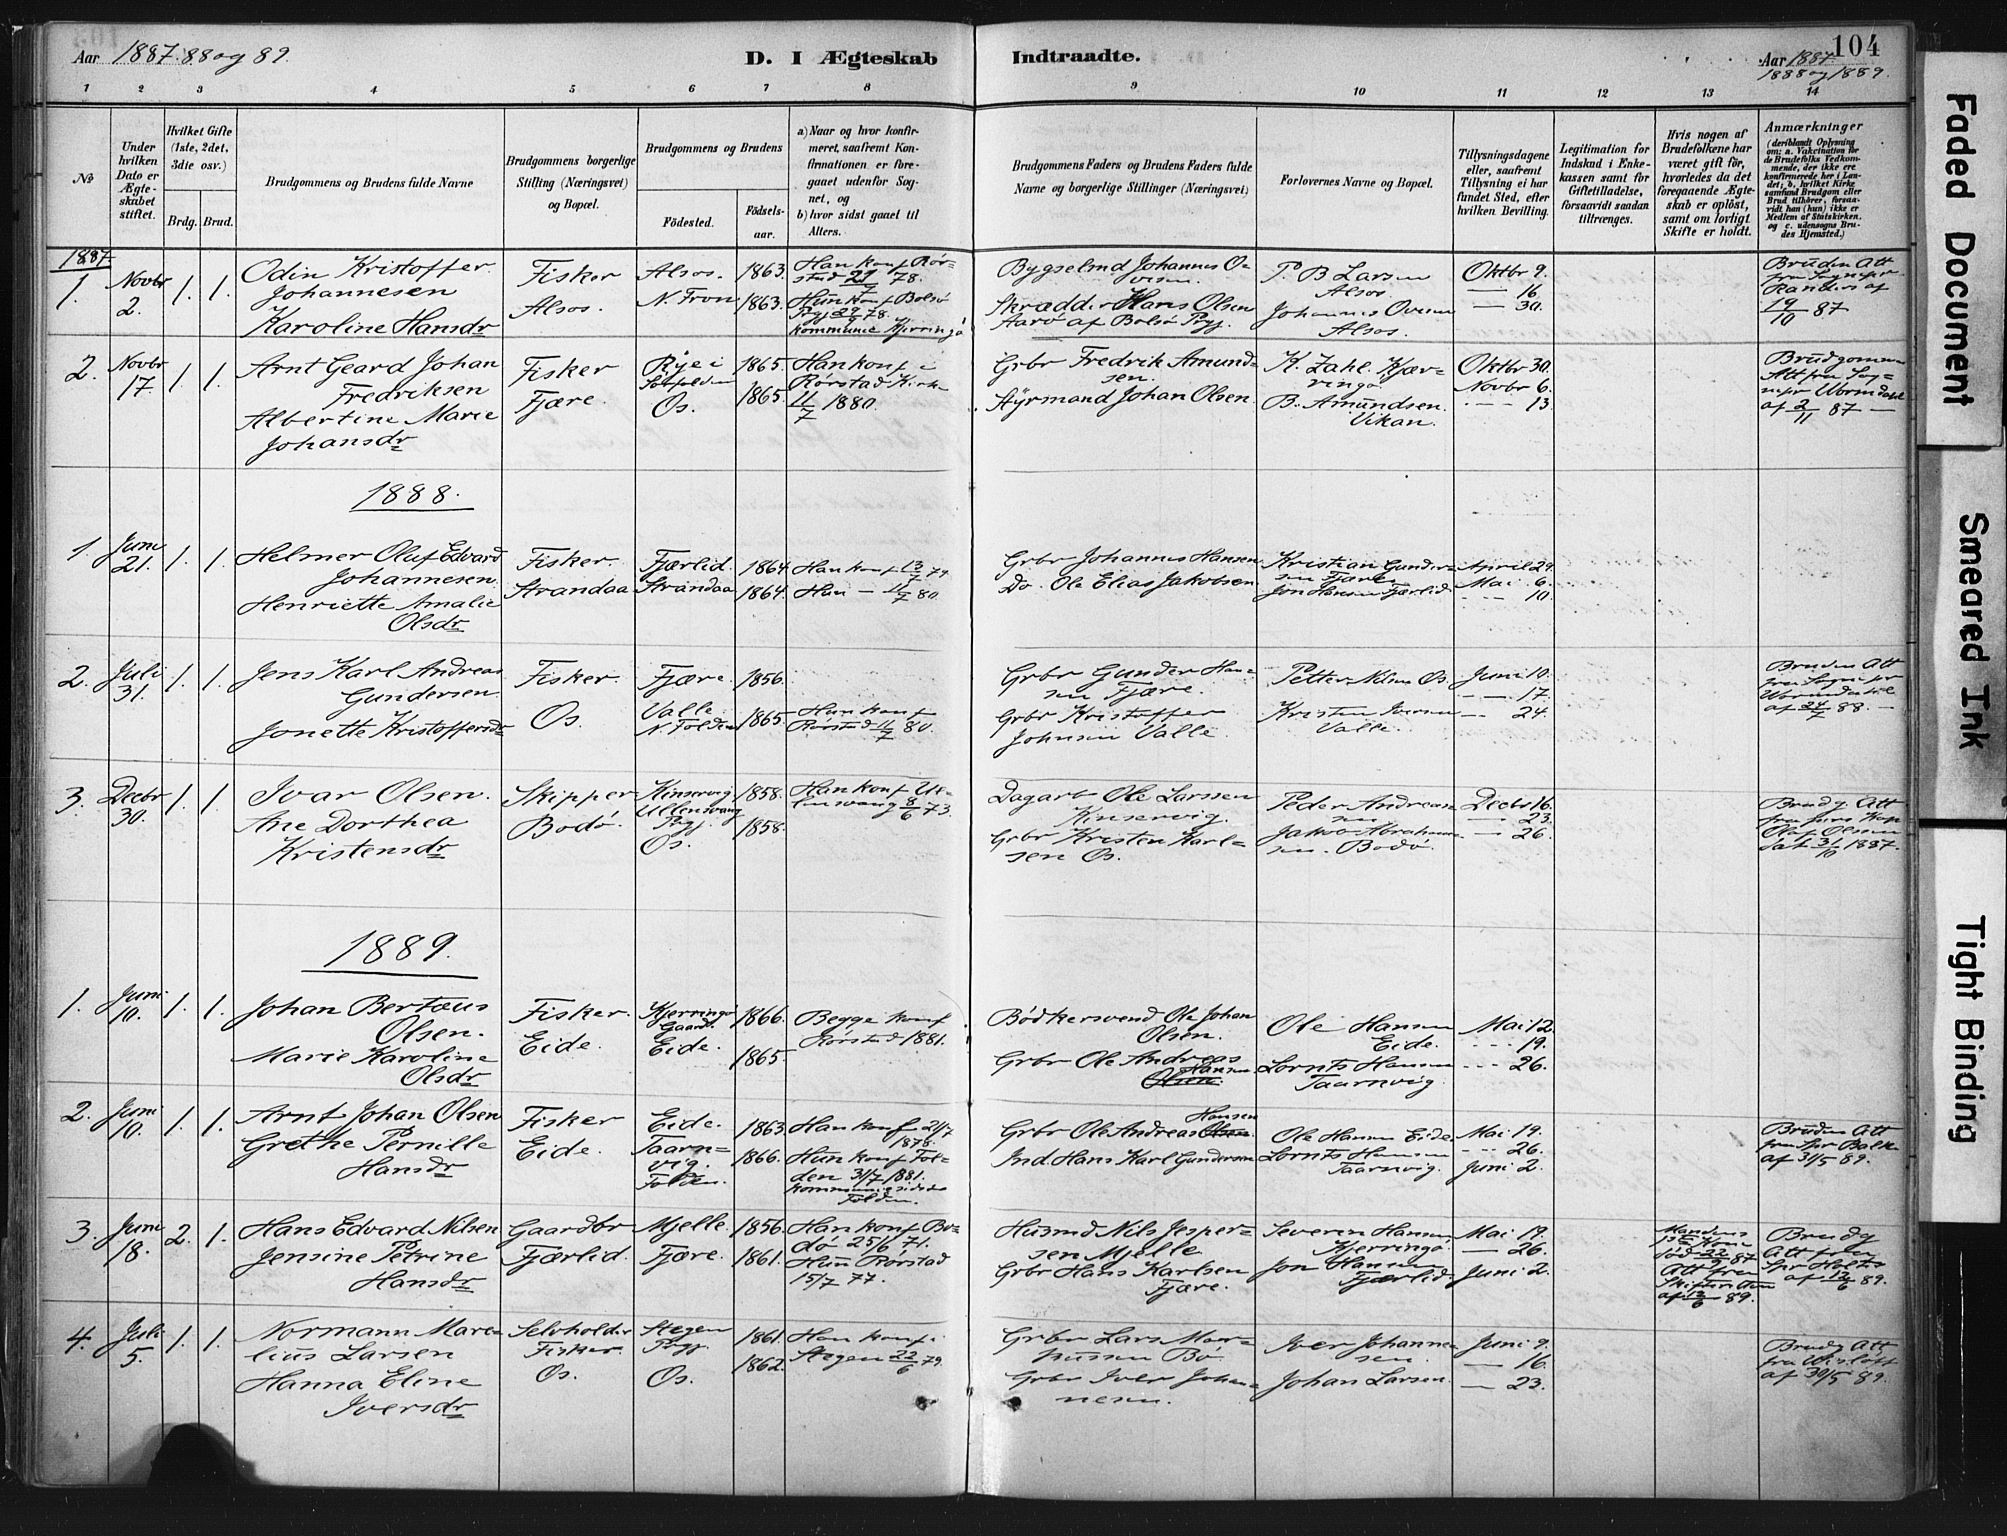 Aar 1887. 88 og 89.
D. I Ægteskab Indtraadte.
104
Aar 1887.
1888 og 1889.
1 2 3 4 5 6 7 8 9 10 11 12 13 14
No
Under hvilken Dato er Ægteskabet stiftet.
Hvilket Gifte (1ste, 2det, 3die osv.)
Brdg. Brud.
Brudgommens og Brudens fulde Navne
Brudgommens borgerlige Stilling (Næringsvei) og Bopæl.
Brudgommens og Brudens
Födested.
Födselsaar.
a) Naar og hvor konfirmeret, saafremt Konfirmationen er foregaaet udenfor Sognet, og
b) hvor sidst gaaet til Alters.
Brudgommens Faders og Brudens Faders fulde Navne og borgerlige Stillinger (Næringsvei)
Forlovernes Navne og Bopæl.
Tillysningsdagene eller, saafremt Tillysning ei har fundet Sted, efter hvilken Bevilling.
Legitimation for Indskud i Enkekassen samt for Giftetilladelse, forsaavidt saadan tiltrænges.
Hvis nogen af Brudefolkene har været gift før, hvorledes da det foregaaende Ægteskab er opløst, samt om lovligt Skifte er holdt.
Anmærkninger
(deriblandt Oplysning om: a. Vakcination for de Brudefolks Vedkommende, der ikke ere konfirmerede her i Landet; b. hvilket Kirkesamfund Brudgom eller Brud tilhører, forsaavidt han (hun) ikke er Medlem af Statskirken, og c. udensogns Brudes Hjemsted.)
1887
1. Novbr 2. 1. 1.
Odin Kristoffer Johannesen
Karoline Hansdr
Fisker
Alsos.
Alsos. 1863.
N. Fron 1863.
Han konf Rörstad 21/7 78.
Hun konf Bolsö Prgj 29/9 78.
kommunic Kjerringö
Bygselmd Johannes Ovesen.
Skrædder Hans Olsen
Aarö af Bolsö Prgj.
P. B Larsen
Alsos
Johannes Ovesen
Alsos.
Oktbr 9.
— 16.
— 30.
Bruden Att
fra Sognepr
Randers af
19/10 87
2. Novbr 17. 1. 1.
Arnt Geard Johan
Fredriksen
Albertine Marie
Johansdr
Fisker
Fjære.
Rye i
1865.
Os. 1865.
Han konf i
Rörstad Kirke
11/7 1880.
Grbr Fredrik Amundsen.
Styrmand Johan Olsen
K. Zahl. Kjærringö
B. Amundsen.
Vikan.
Oktbr 30.
Novbr 6.
— 13.
Brudgommen
Att fra Sognepr Wormdahl
af 2/11 87 —
1888.
1. Juni 21. 1. 1.
Helmer Oluf Edvard
Johannesen.
Henriette Amalie
Olsdr
Fisker.
Strandaa
Fjærlid. 1864
Strandaa 1864.
Han konf 13/7 79
Hun — 11/7 80.
Grbr Johannes Hansen
Do. Ole Elias Jakobsen
Kristian Gundersen Fjære
Jon Hansen Fjærlid.
April 29.
Mai 6.
— 10.
2. Juli 31. 1. 1.
Jens Karl Andreas
Gundersen
Jonette Kristoffersdr
Fisker.
Os.
Fjære. 1856.
Valle
N. Folden 1865.
Hun konf
Rörstad 11/7 80.
Grbr Gunder Hansen Fjære.
Grbr Kristoffer
Johnsen Valle.
Petter Nilsen Os.
Kristen Iversen
Valle.
Juni 10.
— 17.
— 24.
Bruden Att
fra Sognepr
Wormdahl
af 24/7 88. —
3. Decbr 30. 1. 1.
Ivar Olsen.
Ane Dorthea
Kristensdr
Skipper
Bodö.
Kinservig
Ullensvang
Prgj. 1858.
Os. 1858.
Han konf Ullensvang 8/6 73.
Dagarb Ole Larssen
Kinservig.
Grbr Kristen Karlsen Os.
Peder Andreassen
Jakob Abrahamsen. Bodö.
Decbr 16.
— 23.
— 26.
Brudg. Att
fra pers Kap
Olaf Olsen
dat 31/10 1887.
1889.
1. Juni 10. 1. 1.
Johan Bertæus
Olsen.
Marie Karoline
Olsdr
Fisker.
Eide.
Kjerringö
Gaard. 1866.
Eide. 1865
Begge konf
Rörstad 1881.
Bödkersvend Ole Johan
Olsen.
Grbr Ole Andreas
Hansen
Olsen.
Ole Hansen
Eide.
Lornts Hansen
Taarnvig.
Mai 12.
— 19.
— 26.
2. Juni 10. 1. 1.
Arnt Johan Olsen
Grethe Pernille
Hansdr
Fisker
Eide.
Eide. 1863
Taarnvig. 1866.
Folden.
Han konf 21/7
1878.
Hun konf Folden 31/7 1881.
kommunic sidste
Folden.
Grbr Ole Andreas Olsen. Hansen
Ind. Hans Karl Gundersen
Ole Hansen Eide.
Lornts Hansen
Taarnvig.
Mai 19.
— 26.
Juni 2.
Bruden Att
fra Spr Balke
af 31/5 89.
3. Juni 18. 2. 1.
Hans Edvard Nilsen
Jensine Petrine
Hansdr
Gaardbr
Fjærlid.
Mjelle. 1856.
Fjære. 1861.
Han konf Bodö 25/6 71.
Hun Rörstad
15/7 77.
Husmd Nils Jespersen Mjelle
Grbr Hans Karlsen
Fjære.
Severin Hansen
Kjerringö.
Jon Hansen
Fjærlid.
Mai 19.
— 26.
Juni 2.
Mandens
1ste Kone
död 22/9 87
Att fra
Skifteretten
af 12/6 89.
Brudg
Att fra
Spr Holtes
af 12/6 89.
4. Juli 5. 1. 1.
Normann Marelius Larsen
Hanna Eline
Iversdr
Selvholder
Fisker.
Os.
Stegen
Prgj. 1861.
Os. 1862.
Han konf i
Stegen 22/6 79.
Grbr Lars Markussen Bö.
Grbr Iver Johannesen.
Iver Johannesen.
Johan Larsen.
Juni 9.
— 16.
— 23.
Brudg Att
fra Wisløff
af 30/5 89.
Faded Document
Smeared Ink
Tight Binding